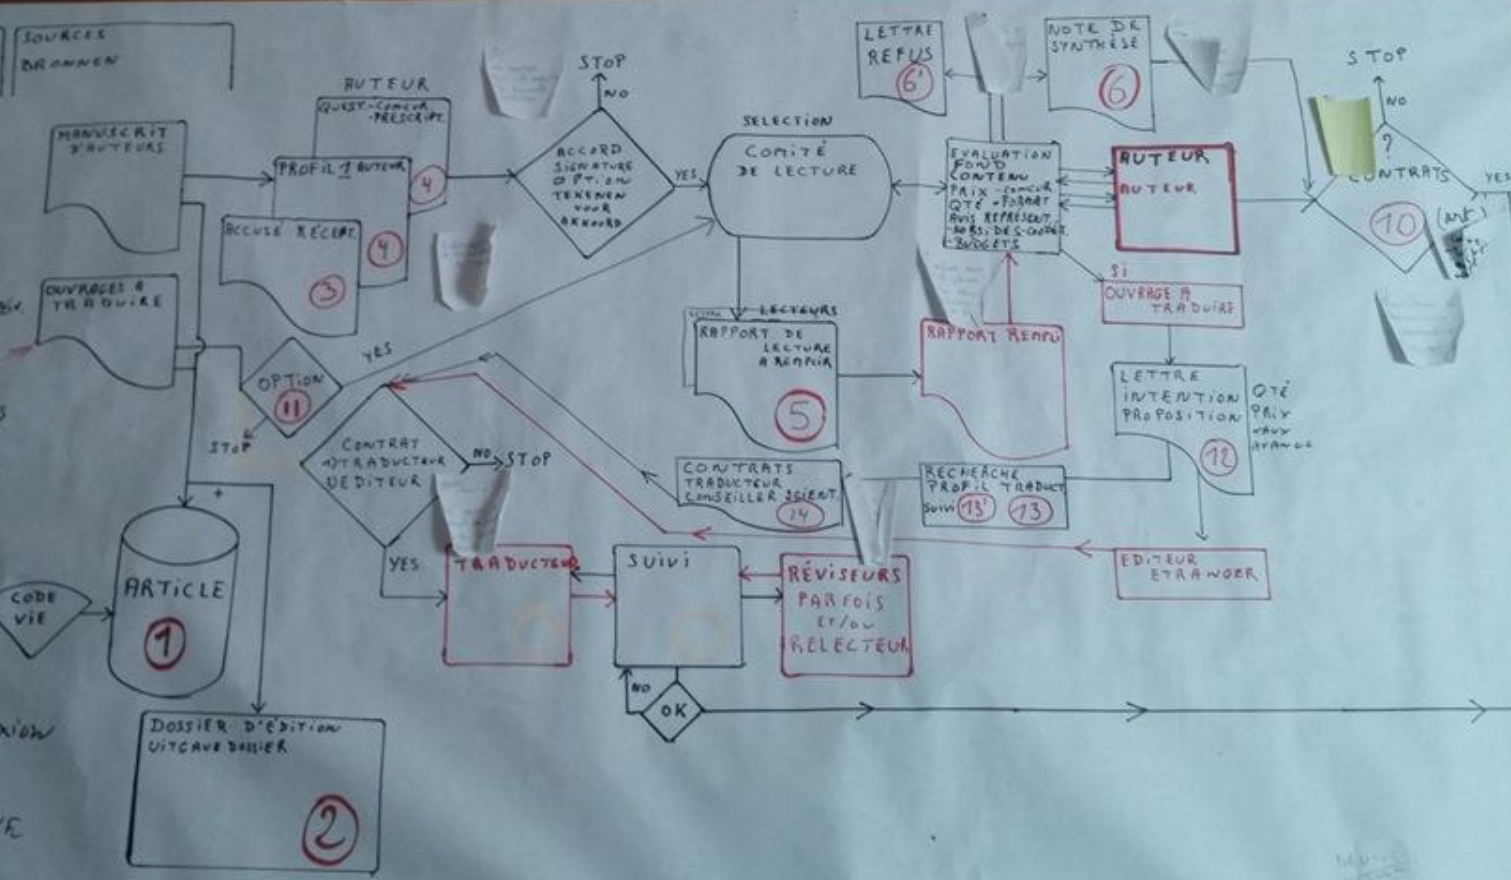 SOURCES
BRONNEN
MANUSCRIT
D'AUTEURS
AUTEUR
QUEST-CONCUR
-PRESCRIPT.
4
PROFIL 1 AUTEUR
4
ACCUSÉ RÉCEPT.
3
OUVRAGES A
TRADUIRE
STOP
NO
ACCORD
SIGNATURE
OPTION
TEKENEN
VOOR
AKKOORD
YES
SELECTION
COMITÉ
DE LECTURE
LETTRE
REFUS
6'
NOTE DE
SYNTHÈSE
6
EVALUATION
FOND
CONTENU
PRIX-CONCUR
QTÉ-FORMAT
AVIS REPRÉSENT.
-BUDGETS
AUTEUR
AUTEUR
STOP
NO
?
CONTRATS
10
YES
SI
OUVRAGE A
TRADUIRE
OPTION
11
YES
STOP
LECTEURS
RAPPORT DE
LECTURE
A REMPLIR
5
RAPPORT REMPLI
LETTRE
INTENTION
PROPOSITION
12
QTÉ
PRIX
TAUX
AVANCE
CONTRAT
TRADUCTEUR
EDITEUR
NO
STOP
YES
CONTRATS
TRADUCTEUR
CONSEILLER SCIENT.
14
RECHERCHE
PROFIL TRADUCT
SUIVI 13' 13
EDITEUR
ETRANGER
+
CODE
VIE
ARTICLE
1
TRADUCTEUR
SUIVI
RÉVISEURS
PARFOIS
ET/OU
RELECTEUR
NO
OK
DOSSIER D'ÉDITION
UITGAVE DOSSIER
2